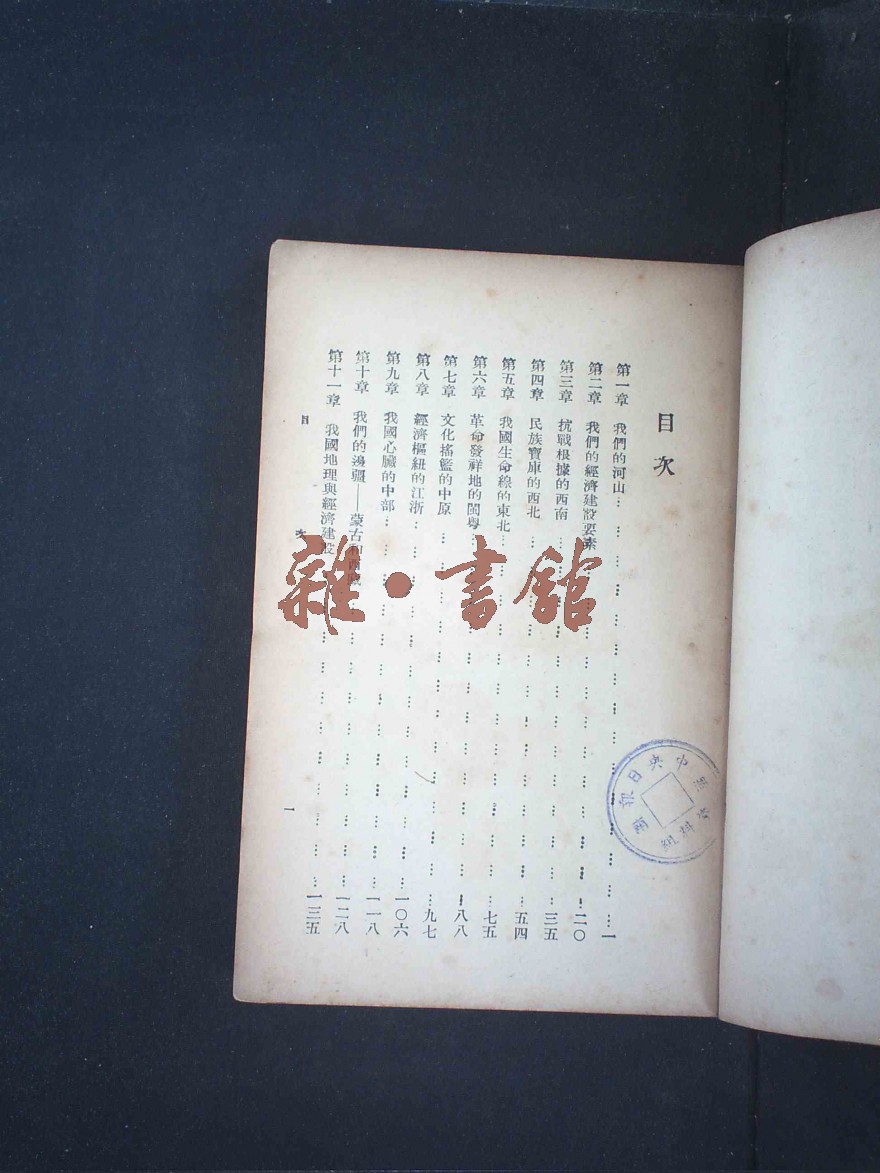 目次
第一章 我們的河山 一
第二章 我們的經濟建設要素 二〇
第三章 抗戰根據的西南 三五
第四章 民族寶庫的西北 五四
第五章 我國生命線的東北 七五
第六章 革命發祥地的閩粵 八八
第七章 文化搖籃的中原 九七
第八章 經濟樞紐的江浙 一〇六
第九章 我國心臟的中部 一一八
第十章 我們的邊疆——蒙古和西藏 一二八
第十一章 我國地理與經濟建設 一三五
目次
一
雜·書館
中央日報
資料組